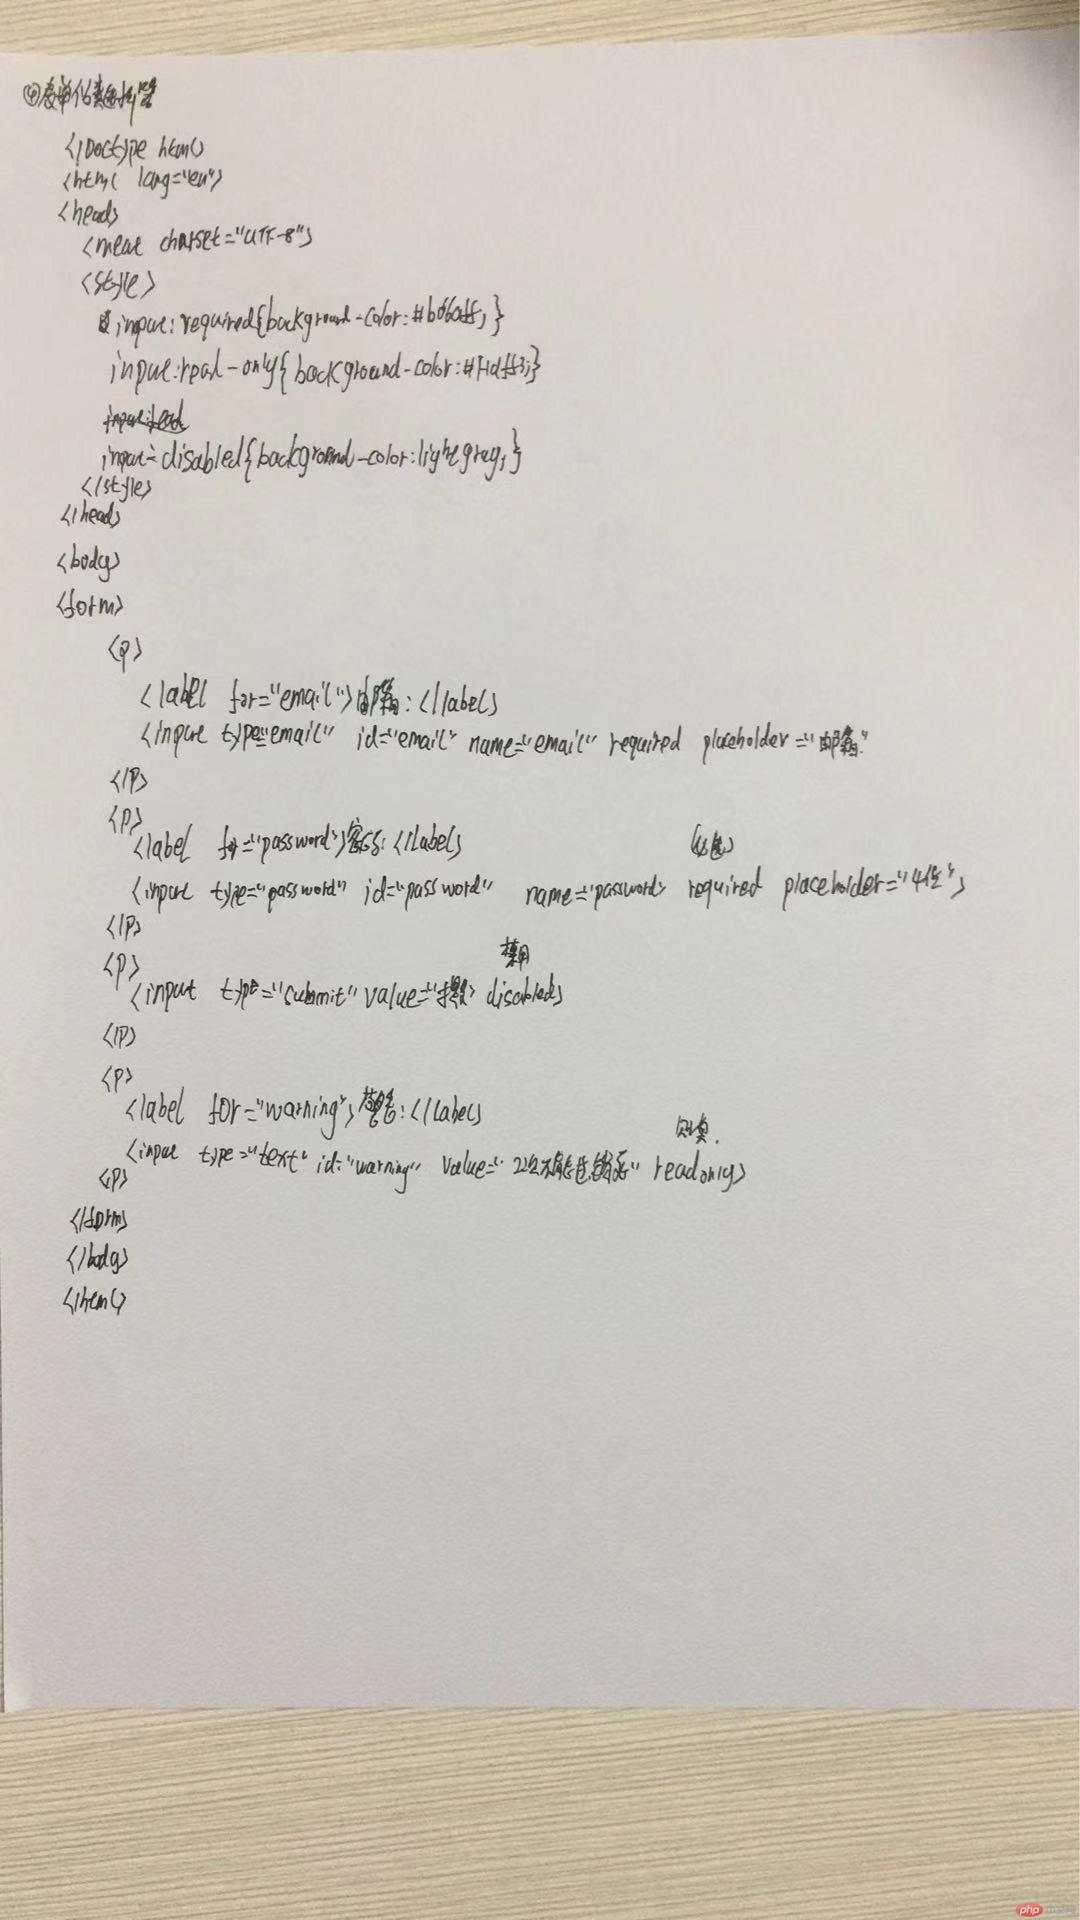 ④表单伪类选择器
<!Doctype html>
<html lang="en">
<head>
<meat charset="UTF-8">
<style>
input:required{background-color:
input:read-only{background-color:
input:disabled{background-color:lightgray;}
</style>
</head>
<body>
<form>
<p>
<label for="email">邮箱:</label>
<input type="email" id="email" name="email" required placeholder="邮箱"
</p>
<p>
<label for="password">密码:</label>
(必选)
<input type="password" id="password" name="password" required placeholder="
</p>
禁用
<p>
<input type="submit" value="提交" disabled>
</p>
<p>
<label for="warning">警告:</label>
只读.
<input type="text" id="warning" value=" readonly>
<p>
</form>
</body>
</html>
php